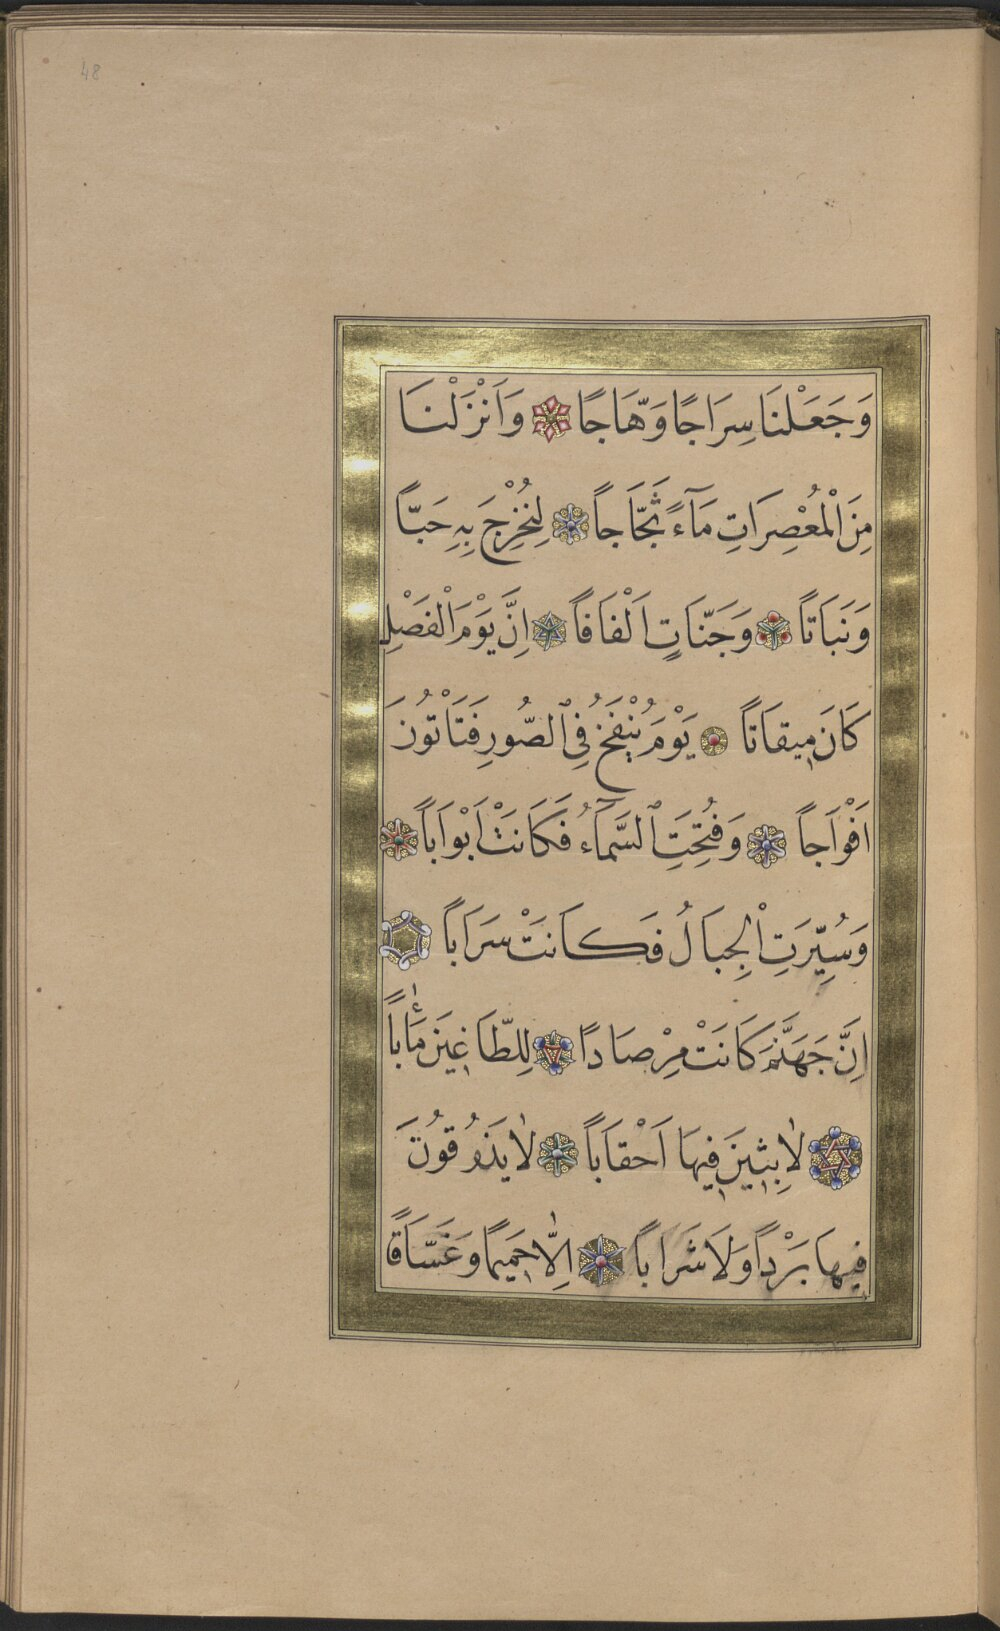 48
وَجَعَلْنَا سِرَاجًا وَهَّاجًا وَاَنْزَلْنَا
مِنَ الْمُعْصِرَاتِ مَآءً ثَجَّاجاً لِنُخْرِجَ بِهِ حَبًّا
وَنَبَاتًا وَجَنَّاتٍ اَلْفَافًا اِنَّ يَوْمَ الْفَصْلِ
كَانَ مِيقَاتًا يَوْمَ يُنْفَخُ فِي الصُّورِ فَتَاْتُونَ
اَفْوَاجاً وَفُتِحَتِ السَّمَآءُ فَكَانَتْ اَبْوَاباً
وَسُيِّرَتِ الْجِبَالُ فَكَانَتْ سَرَاباً
اِنَّ جَهَنَّمَ كَانَتْ مِرْصَادًا لِلطَّاغِينَ مَاٰباً
لَابِثِينَ فِيهَا اَحْقَاباً لَا يَذُوقُونَ
فِيهَا بَرْداً وَلَا شَرَاباً اِلَّا حَمِيماً وَغَسَّاقاً